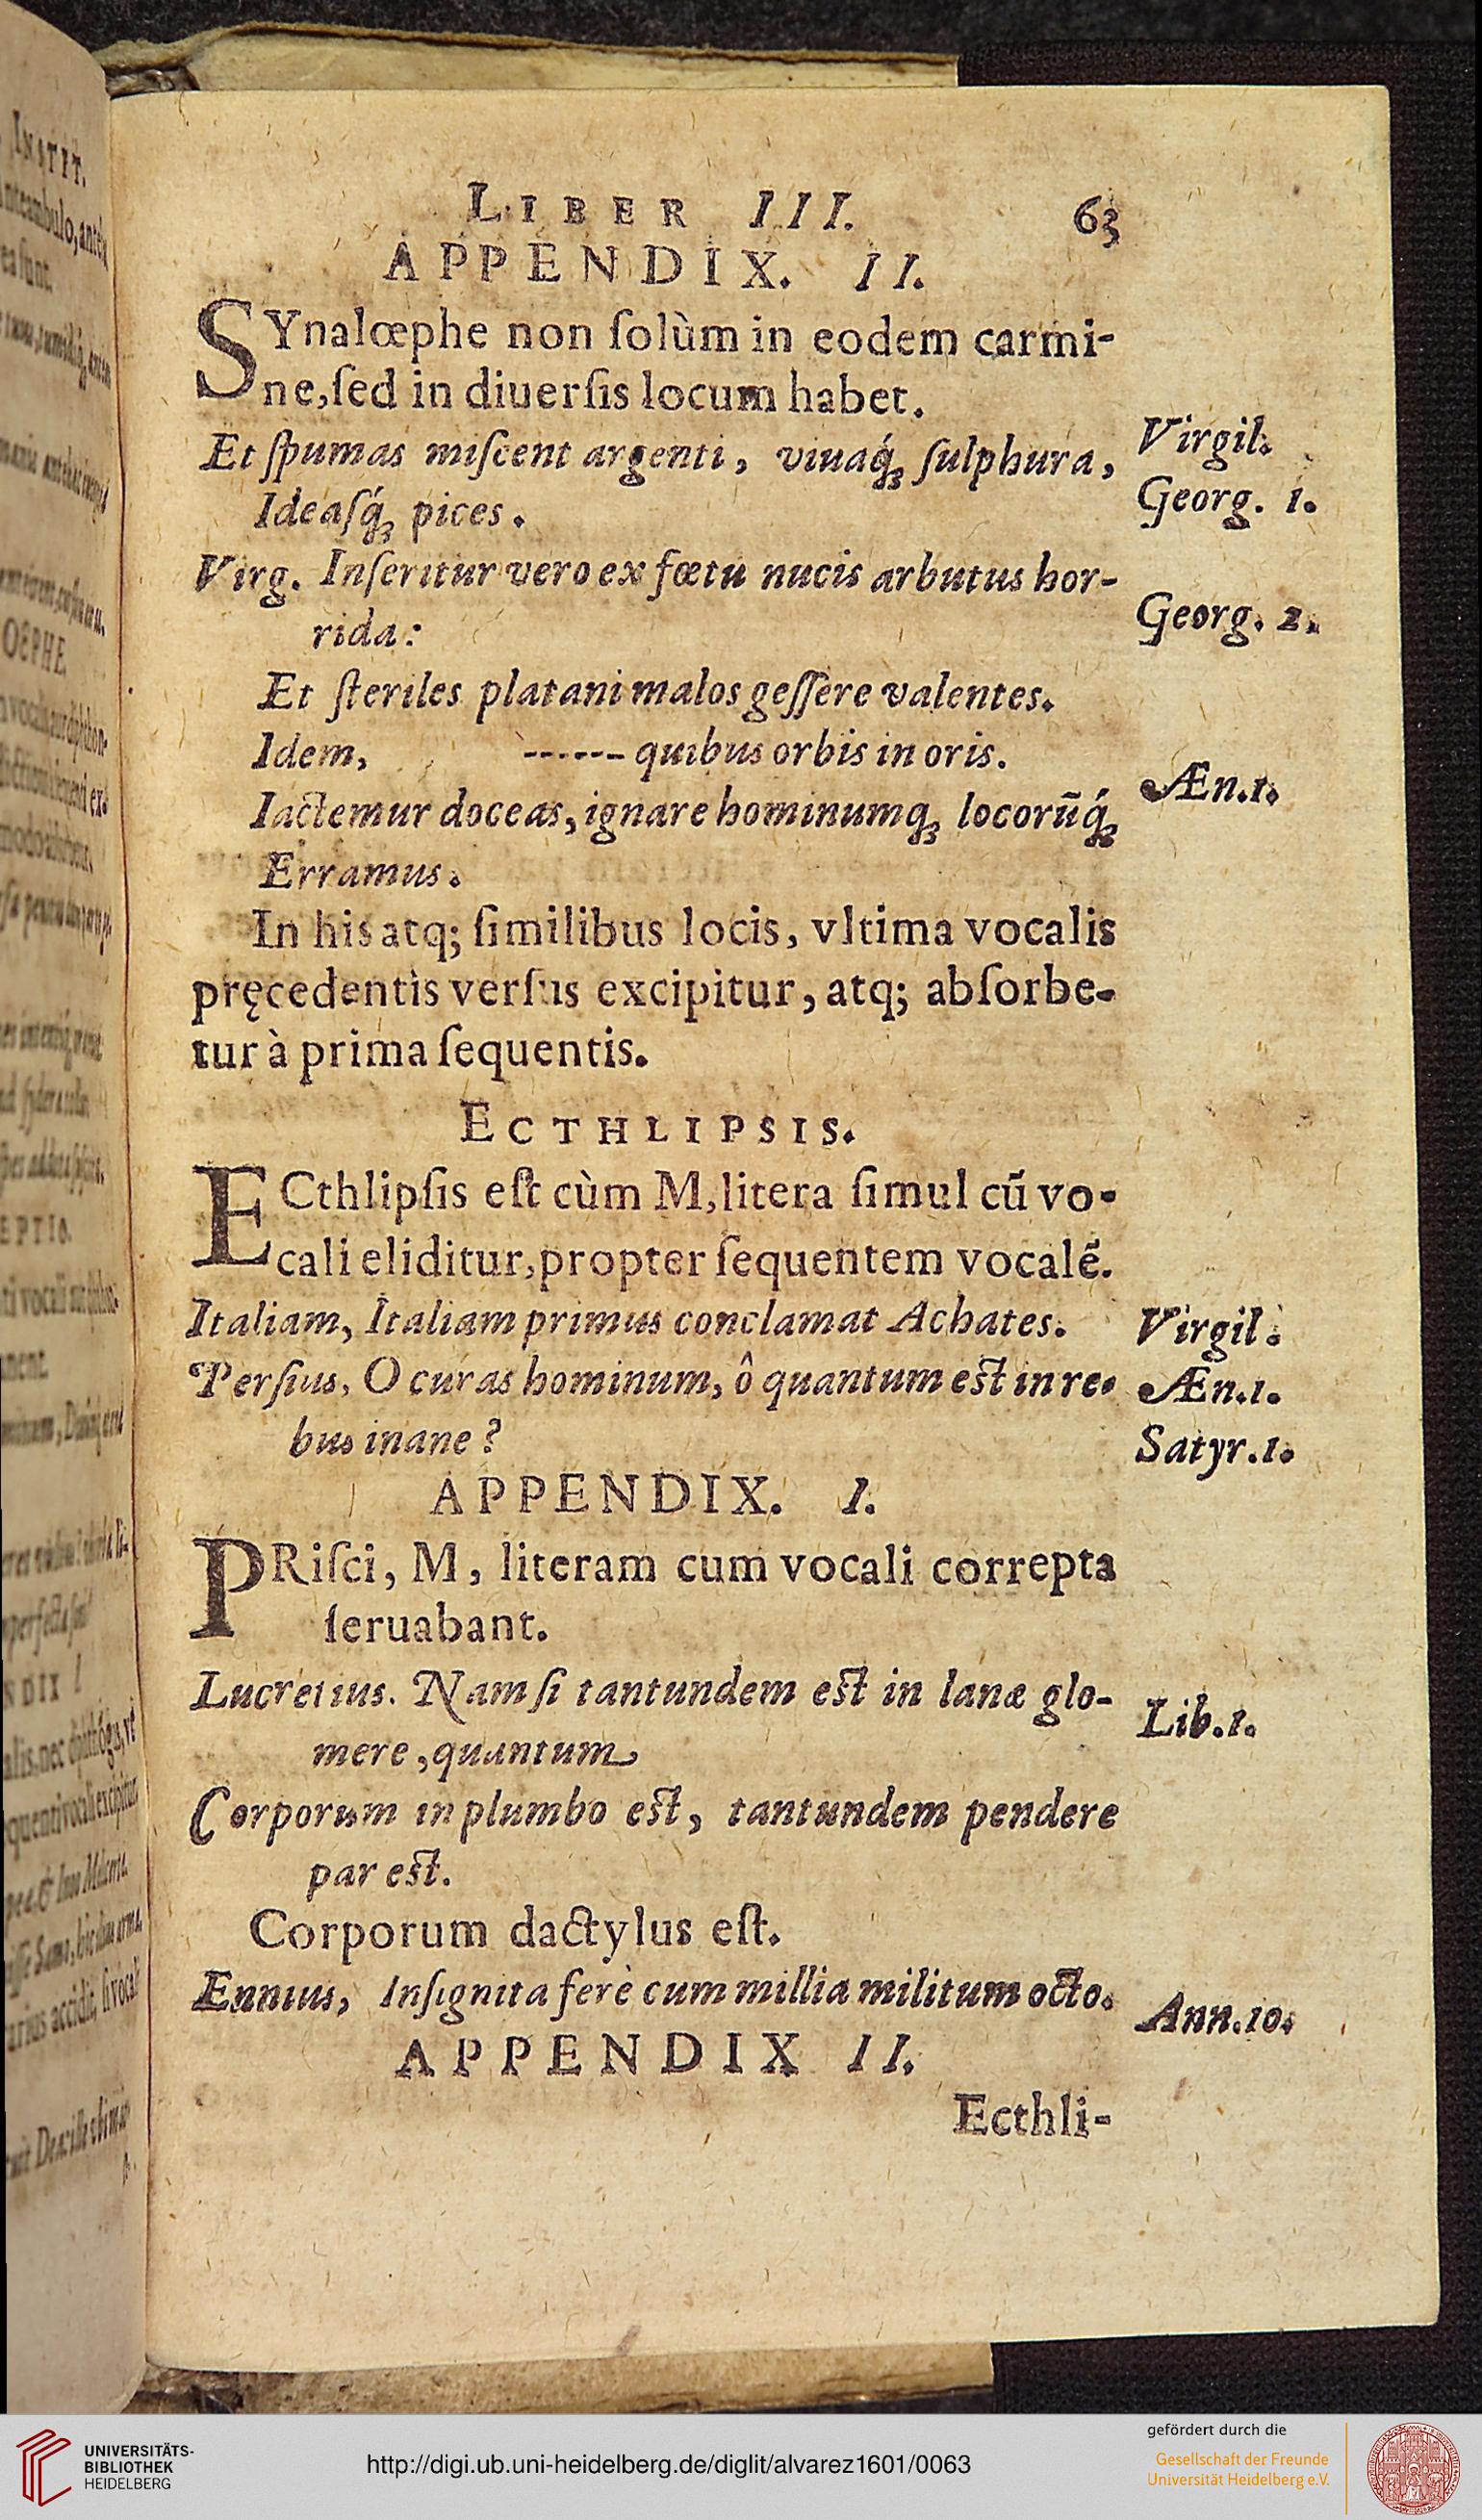 LIBER III. 63
APPENDIX. II.
SYnalœphe non ſolùm in eodem carmi-
ne,ſed in diuerſis locum habet.
Et ſpumas miſcent argenti, viuaq́ꝫ ſulphura,
Virgil.
Ideaſq́ꝫ pices.
Georg. 1.
Virg. Inſeritur vero ex fœtu nucis arbutus hor-
rida:
Georg. 2.
Et ſteriles platani malos geſſere valentes.
Idem, ------ quibus orbis in oris.
Iactemur doceas, ignare hominumqꝫ locorũq́ꝫ
Æn.1.
Erramus.
In his atq; ſimilibus locis, vltima vocalis
pręcedentis verſus excipitur, atq; abſorbe-
tur à prima ſequentis.
ECTHLIPSIS.
ECthlipſis eſt cùm M,litera ſimul cũ vo-
cali eliditur,propter ſequentem vocalẽ.
Italiam, Italiam primus conclamat Achates.
Virgil.
Perſius, O curas hominum, ô quantum eſt in re-
Æn.1.
bus inane?
Satyr.1.
APPENDIX. I.
PRiſci, M, literam cum vocali correpta
ſeruabant.
Lucretius. Nam ſi tantundem eſt in lanæ glo-
Lib.1.
mere, quantum
Corporum in plumbo eſt, tantundem pendere
par eſt.
Corporum dactylus eſt.
Ennius, Inſignita ferè cum millia militum octo.
Ann.10.
APPENDIX II.
Ecthli-
UNIVERSITÄTS-
BIBLIOTHEK
HEIDELBERG
http://digi.ub.uni-heidelberg.de/diglit/alvarez1601/0063
gefördert durch die
Gesellschaft der Freunde
Universität Heidelberg e.V.